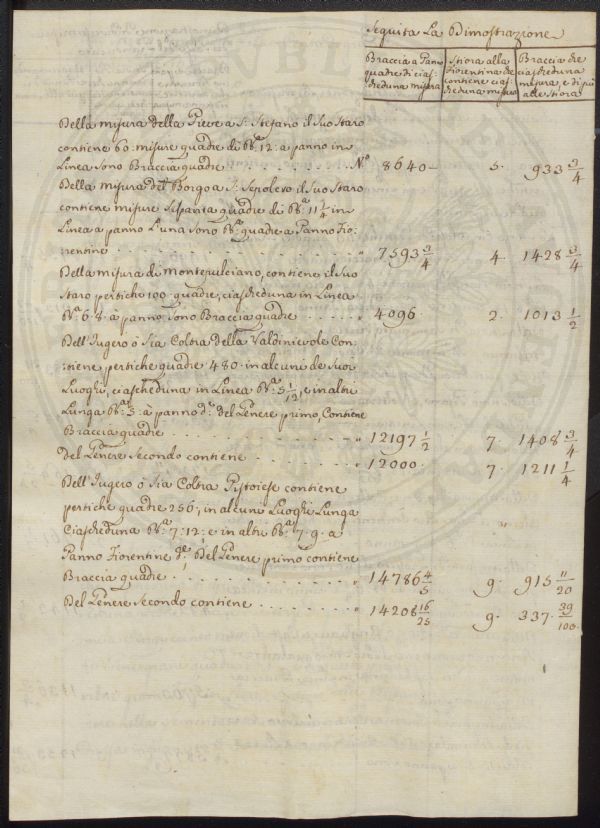 Seguita La Dimostrazione
Braccia a Panno quadre di ciascheduna misura
Stiora alla Fiorentina che contiene ciascheduna misura
Braccia che ciascheduna misura, è di più alle Stiora
Della misura della Pieve a S: Stefano il Suo Staro
contiene 60: misure quadre di Bra: 12: a panno in
Linea sono Braccia quadre . . . . . . . . . No 8640 — 5 · 933 3/4
Della misura del Borgo a S: Sepolcro il Suo Staro
contiene misure sessanta quadre di Bra 11 1/4 in
Linea a panno L'una sono Bra: quadre a Panno Fio-
:rentine . . . . . . . . . . . . . . . . " 7593 3/4 4 · 1428 3/4
Della misura di Montepulciano, contiene il Suo
Staro pertiche 100 quadre, ciascheduna in Linea
Bra 6 8 à panno sono Braccia quadre . . . . . " 4096 · 2 · 1013 1/2
Dell'Iugero ò Sia Coltra della Valdinievole Con-
:tiene pertiche quadre 480 in alcuni de Suoi
Luoghi, ciascheduna in Linea Bra: 5 1/12, e in altri
Lunga Bra: 5: à panno do del Genere primo, Contiene
Braccia quadre . . . . . . . . . . . . . " 12197 1/2 7 · 1408 3/4
Del Genere Secondo contiene . . . . . . . . " 12000 · 7 · 1211 1/4
Dell'Iugero ò Sia Coltra Pistoiese contiene
pertiche quadre 256:, in alcuni Luoghi Lunga
Ciascheduna Bra: 7:12: e in altri Bra: 7 9 a "
Panno Fiorentine do: Del Genere primo contiene
Braccia quadre . . . . . . . . . . . . . " 14786 4/5 9 · 915 11/20
Del Genere Secondo contiene . . . . . . . . " 14208 16/25 9 · 337 · 39/100